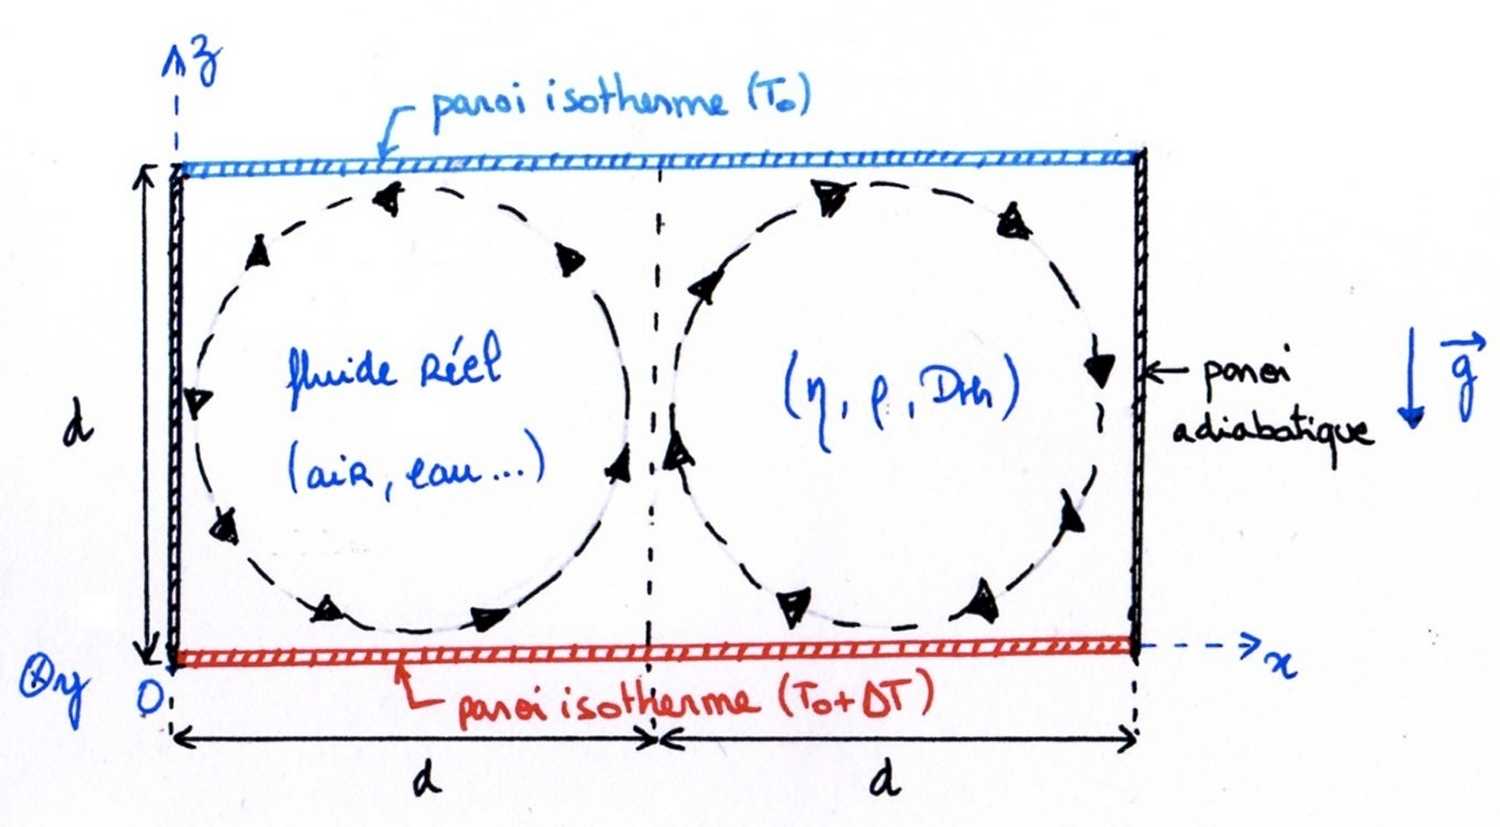 z
paroi isotherme (T₀)
fluide réel
(air, eau...)
(η, ρ, Dth)
d
paroi
adiabatique
g
⊗y
O
x
paroi isotherme (T₀+ΔT)
d
d